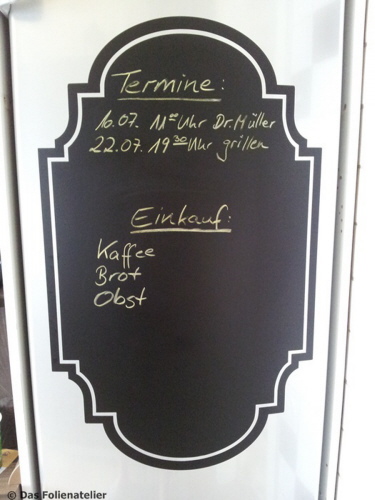 Termine:
10.07. 11⁰⁰ Uhr Dr. Müller
22.07. 19³⁰ Uhr grillen
Einkauf:
Kaffee
Brot
Obst
© Das Folienatelier